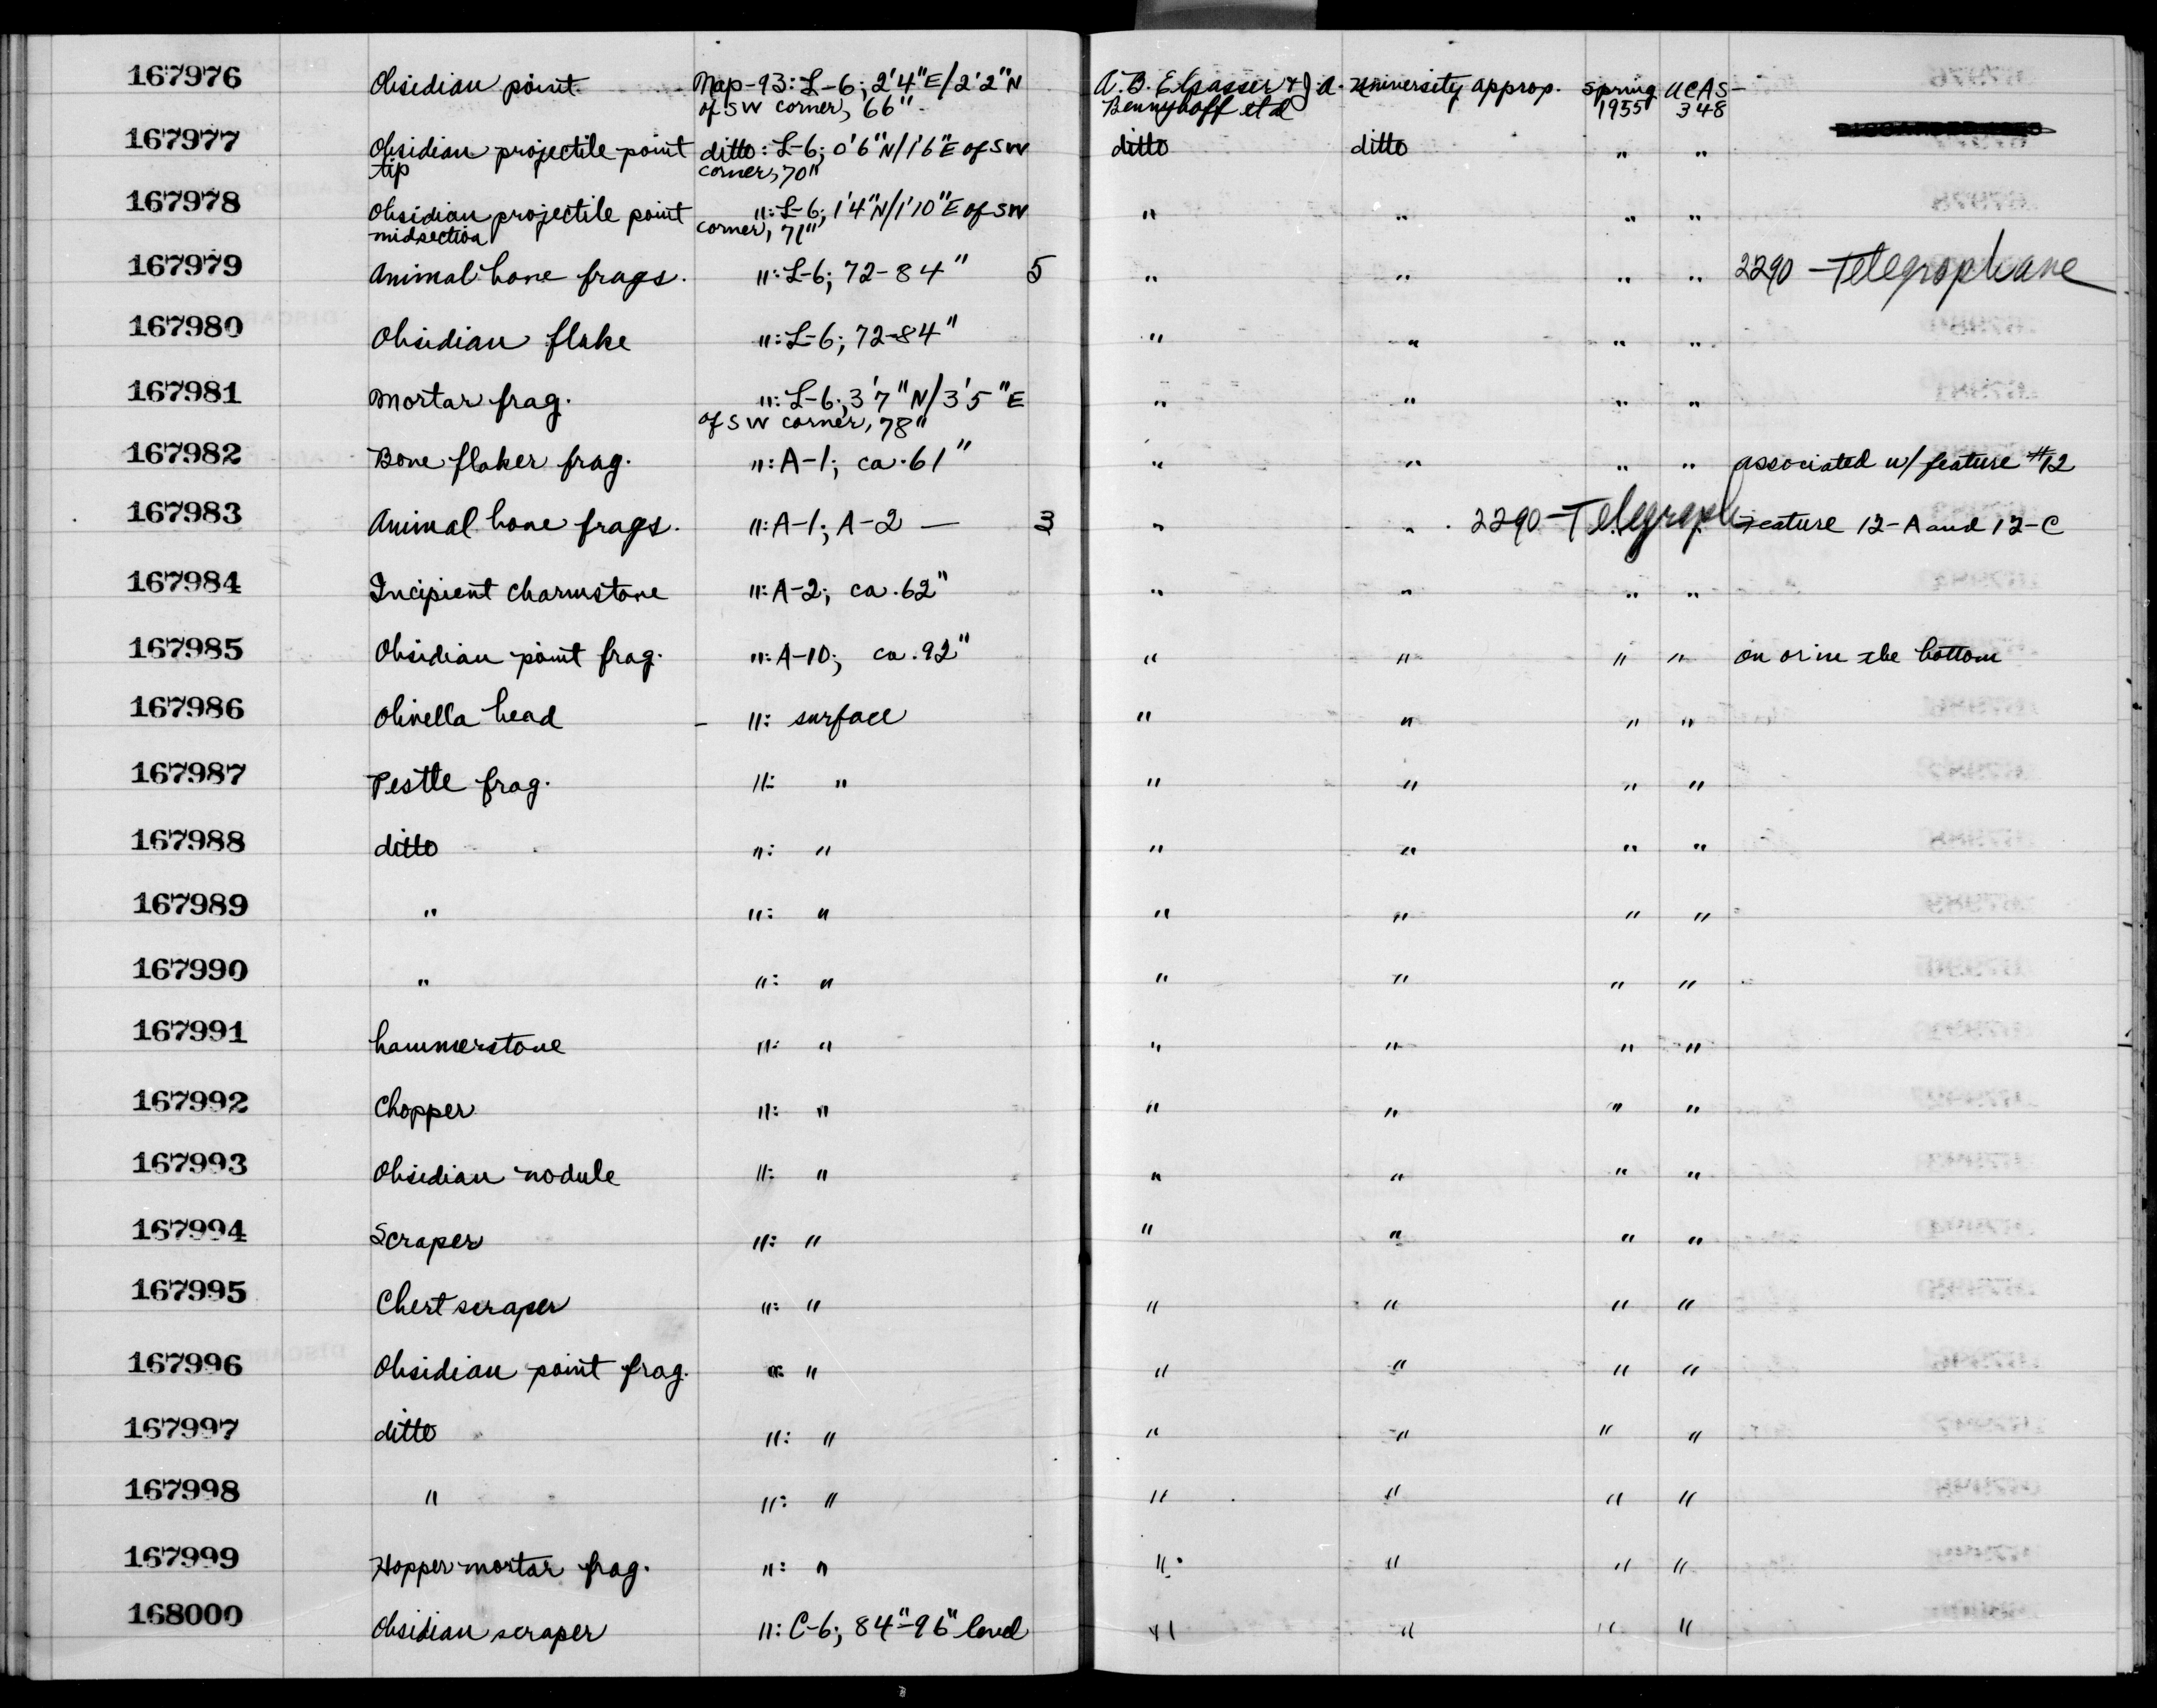 167976 Obsidian point. Nap-93: L-6; 2'4"E/2'2"N of SW corner, 66". A. B. Elsasser & J. A. Bennyhoff et al University approp. Spring 1955 UCAS-348
167977 Obsidian projectile point tip ditto: L-6; 0'6"N/1'6"E of SW corner, 70" ditto ditto " "
167978 Obsidian projectile point midsection ": L-6; 1'4"N/1'10"E of SW corner, 71" " " " "
167979 Animal bone frags. ": L-6; 72-84" 5 " " " " 2290 - Telegraph ave
167980 Obsidian flake ": L-6; 72-84" " " " "
167981 Mortar frag. ": L-6; 3'7"N/3'5"E of SW corner, 78" " " " "
167982 Bone flaker frag. ": A-1; ca. 61" " " " " associated w/ feature #12
167983 Animal bone frags. ": A-1; A-2 — 3 " " 2290 - Telegraph Feature 12-A and 12-C
167984 Incipient charmstone ": A-2; ca. 62" " " " "
167985 Obsidian point frag. ": A-10; ca. 92" " " " " on or in the bottom
167986 Olivella bead - ": surface " " " "
167987 Pestle frag. ": " " " " "
167988 ditto ": " " " " "
167989 " ": " " " " "
167990 " ": " " " " "
167991 hammerstone ": " " " " "
167992 Chopper ": " " " " "
167993 Obsidian nodule ": " " " " "
167994 Scraper ": " " " " "
167995 Chert scraper ": " " " " "
167996 Obsidian point frag. ": " " " " "
167997 ditto ": " " " " "
167998 " ": " " " " "
167999 Hopper mortar frag. ": " " " " "
168000 Obsidian scraper ": C-6; 84"-96" level " " " "